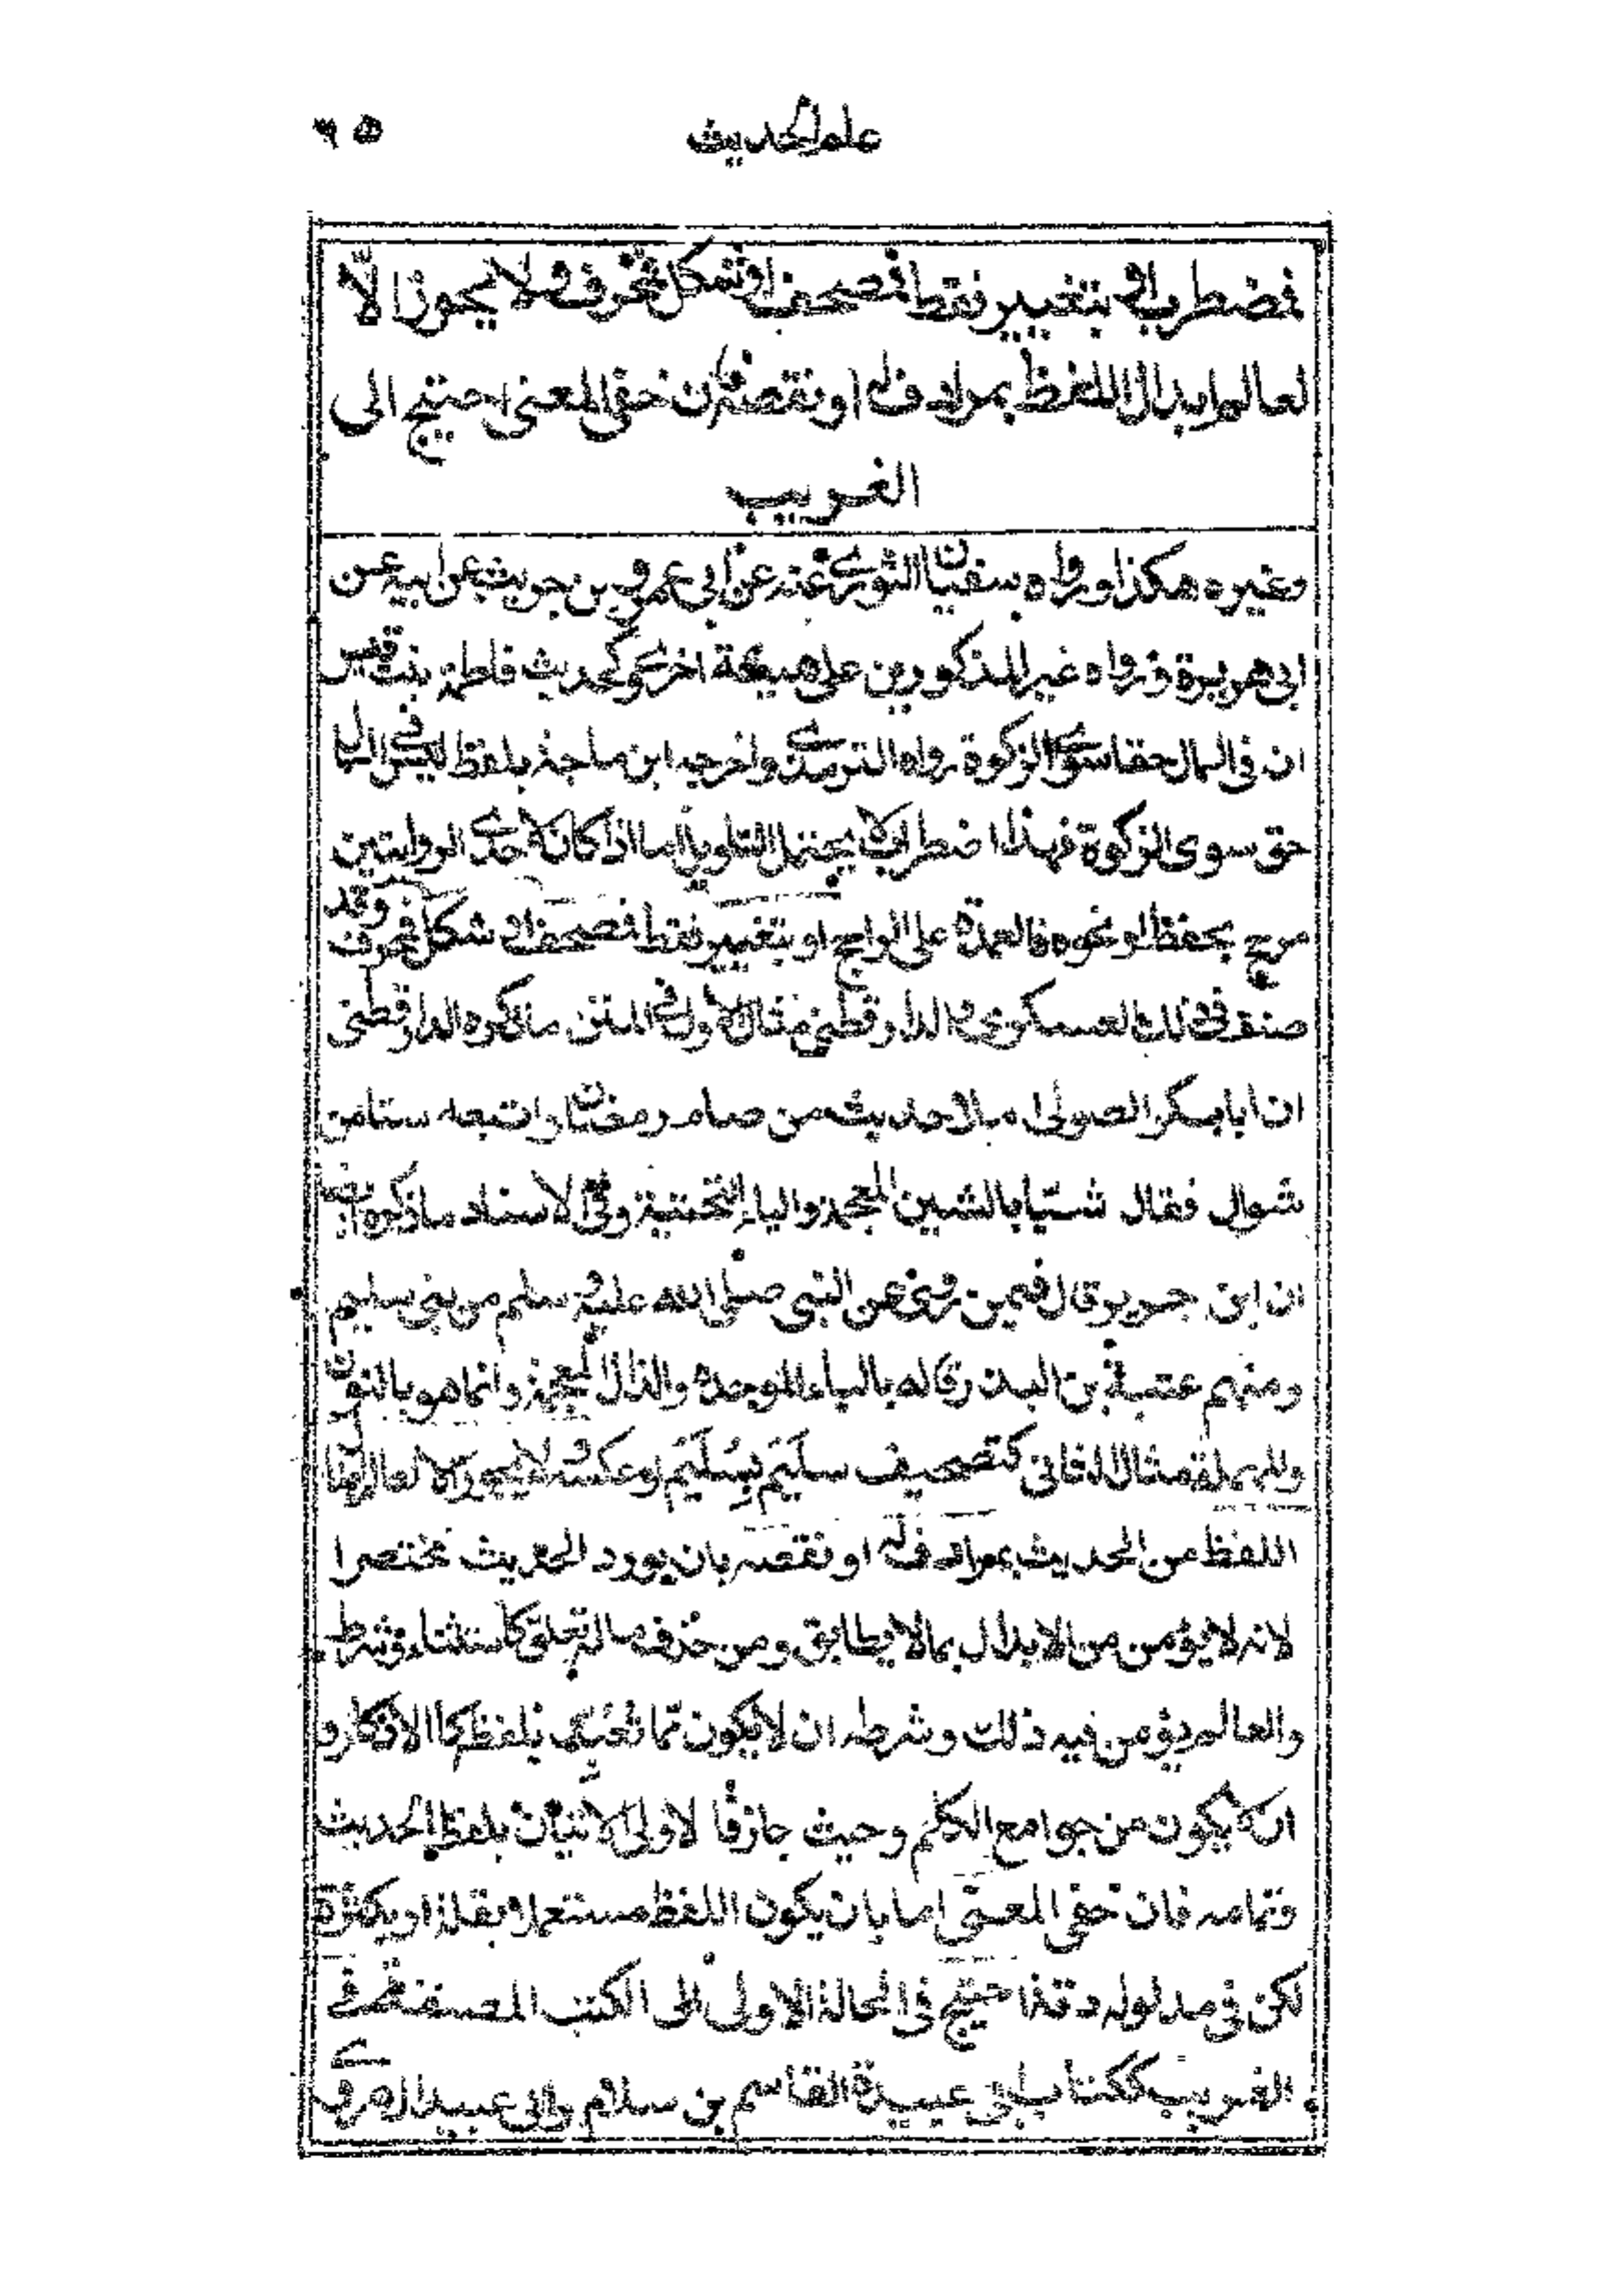 علم الحديث ٦٥
فمضطرب او بتغيير نقط فمصحف او شكل فمحرف ولا يجوز الا
لعالم ابدال اللفظ بمرادف له او نقصه فان خفي المعنى احتيج الى
الغريب
وغيره هكذا ورواه سفيان الثوري عنه عن ابي عمرو بن حريث عن ابيه عن
ابي هريرة ورواه غير المذكورين على هيئة اخرى وكحديث فاطمة بنت قيس
ان في المال حقا سوى الزكوة رواه الترمذي واخرجه ابن ماجة بلفظ ليس في المال
حق سوى الزكوة فهذا اضطراب لا يحتمل التاويل اما اذا كان لاحدى الروايتين
مرجح بحفظ او نحوه فالعمدة على الراجح او بتغيير نقط فمصحف او شكل فمحرف وقد
صنف في ذلك العسكري والدارقطني مثال الاول في المتن ما ذكره الدارقطني
ان ابا بكر الصولي املا حديث من صام رمضان واتبعه ستا من
شوال فقال شيّا بالشين المعجمة والياء التحتية وفي الاسناد ما ذكره ايضا
ان ابن جرير قال فيمن روى عن النبي صلى الله عليه وسلم من بني سليم
ومنهم عتبة بن البذر قاله بالباء الموحدة والذال المعجمة وانما هو بالنون
والمهملة ومثال الثاني كتصحيف سَليم بسُلَيم او عكسه ولا يجوز الا لعالم ابدال
اللفظ من الحديث بمرادف له او نقصه بان يورد الحديث مختصرا
لانه لا يؤمن من الابدال بما لا يطابق ومن حذف ما له تعلق كاستثناء وشرط
والعالم يؤمن فيه ذلك وشرطه ان لا يكون مما تُعُبِّد بلفظه كالاذكار و
ان لا يكون من جوامع الكلم وحيث جاز فالاولى الاتيان بلفظ الحديث
وتمامه فان خفي المعنى اما بان يكون اللفظ مستعملا بقلة او بكثرة
لكن في مدلوله دقة احتيج في الحالة الاولى الى الكتب المصنفة في
الغريب ككتاب ابي عبيدة القاسم بن سلام وابي عبيد الهروي